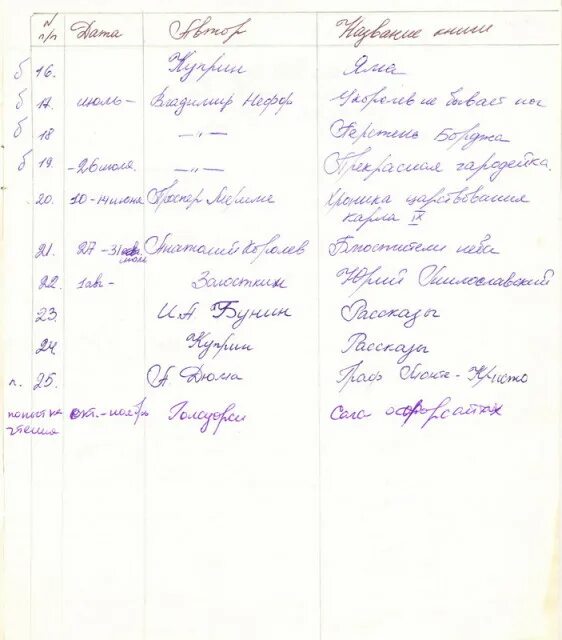 N п/п Дата Автор Название книги
б 16. Куприн Яма
б 17. июль - Владимир Нефф У королев не бывает ног
б 18 —"— Перстень Борджа
б 19. - 26 июля. —"— Прекрасная чародейка.
20. 10 - 14 июня Проспер Мериме Хроника царствования
карла IX
21. 27 - 31 июля Анатолий Королев Блюстители неба
22. 1 авг - Загоскин Юрий Милославский
23. И А Бунин Рассказы
24. Куприн Рассказы
п. 25. А. Дюма Граф Монте - Кристо
попытка окт. - ноябрь Голсуорси Сага о форсайтах
чтения